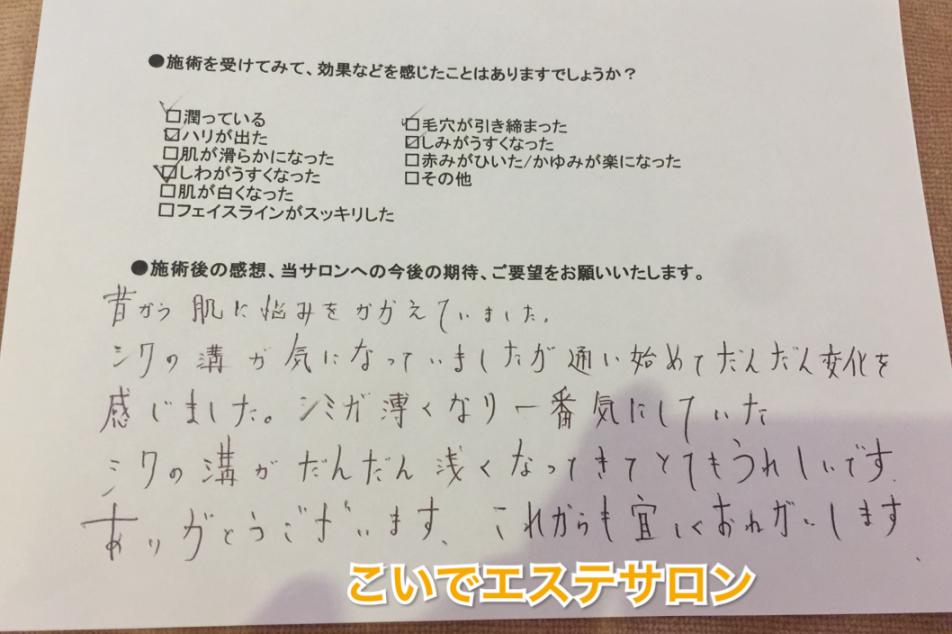 ●施術を受けてみて、効果などを感じたことはありますでしょうか？
☑潤っている
☑ハリが出た
□肌が滑らかになった
☑しわがうすくなった
□肌が白くなった
□フェイスラインがスッキリした
☑毛穴が引き締まった
☑しみがうすくなった
□赤みがひいた/かゆみが楽になった
□その他
●施術後の感想、当サロンへの今後の期待、ご要望をお願いいたします。
昔から肌に悩みをかかえていました。
シワの溝が気になっていましたが通い始めてだんだん変化を
感じました。シミが薄くなり一番気にしていた
シワの溝がだんだん浅くなってきてとてもうれしいです.
ありがとうございます、これからも宜しくおねがいします.
こいでエステサロン